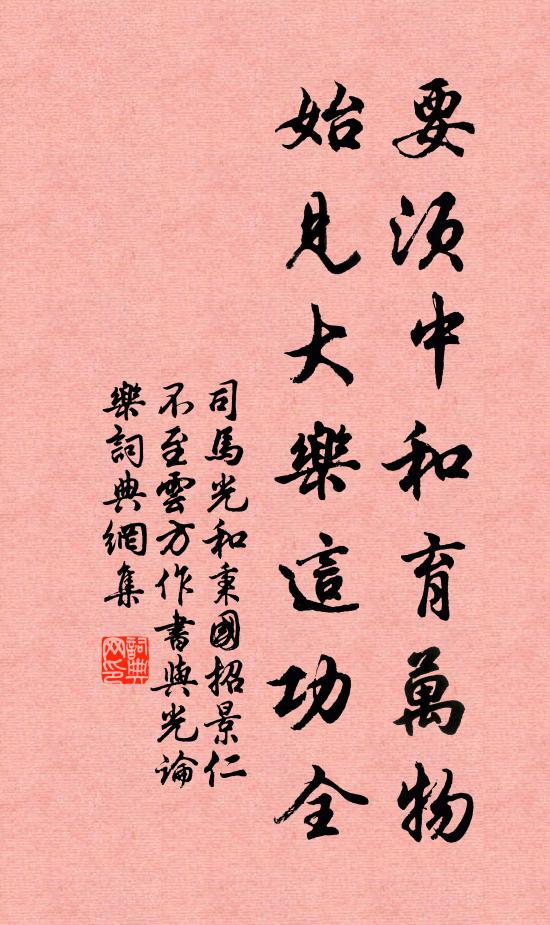 要須中和育萬物
始見大樂這功全
司馬光和秉國招景仁
不至雲方作書與光論
樂詞典網集
詞典網印